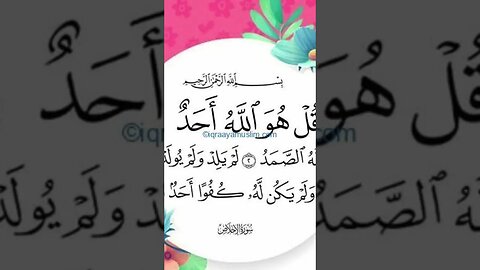 بِسْمِ ٱللَّهِ ٱلرَّحْمَٰنِ ٱلرَّحِيمِ
قُلْ هُوَ ٱللَّهُ أَحَدٌ
©iqraayamuslim.com
ٱلصَّمَدُ ٢ لَمْ يَلِدْ وَلَمْ يُولَدْ
وَلَمْ يَكُن لَّهُۥ كُفُوًا أَحَدٌ
سُورَةُ الإِخْلَاصِ